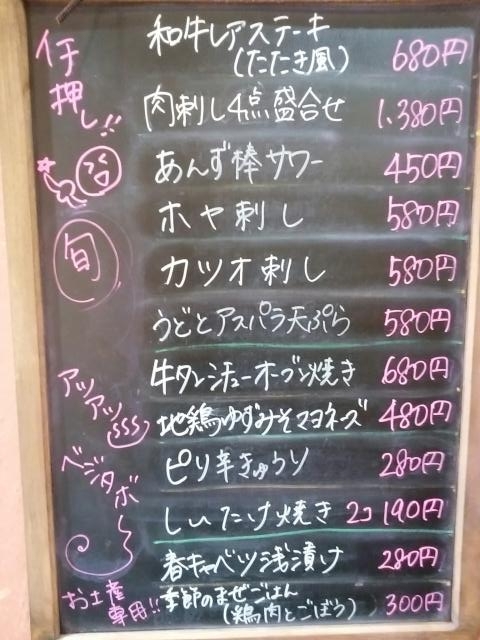 イチ押し!!
和牛レアステーキ
(たたき風) 680円
肉刺し4点盛合せ 1,380円
あんず棒サワー 450円
旬
ホヤ刺し 580円
カツオ刺し 580円
うどとアスパラ天ぷら 580円
アツアツ
牛タンシチューオーブン焼き 680円
地鶏ゆずみそマヨネーズ 480円
ベジタボー
ピリ辛きゅうり 280円
しいたけ焼き 2コ 190円
春キャベツ浅漬け 280円
お土産専用!!
季節のまぜごはん
(鶏肉とごぼう) 300円